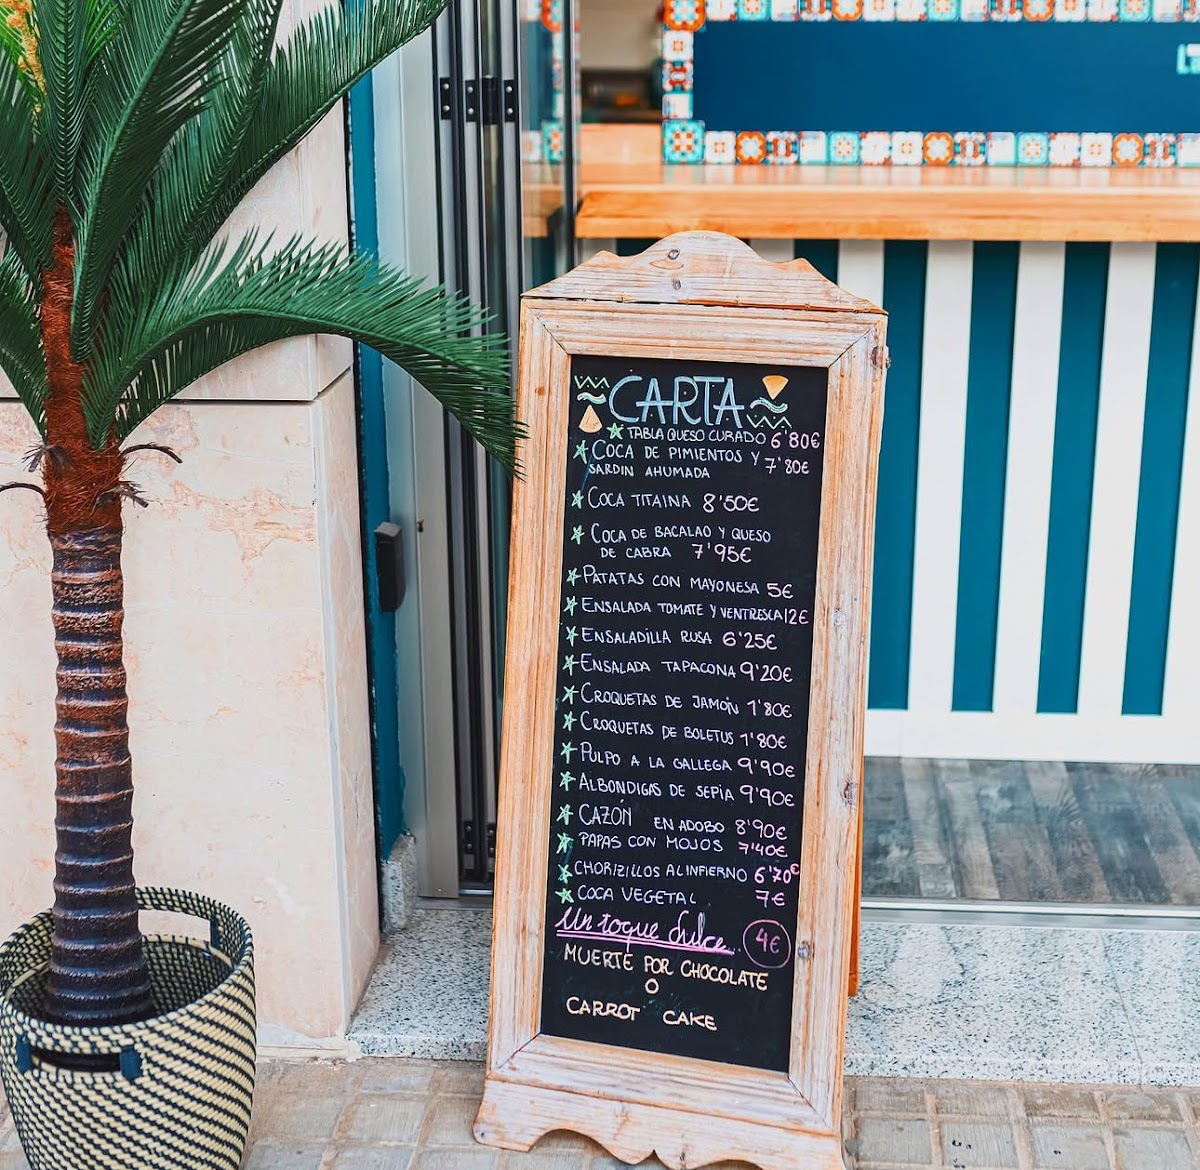 CARTA
TABLA QUESO CURADO 6'80€
COCA DE PIMIENTOS Y 7'80€
SARDIN AHUMADA
COCA TITAINA 8'50€
COCA DE BACALAO Y QUESO
DE CABRA 7'95€
PATATAS CON MAYONESA 5€
ENSALADA TOMATE Y VENTRESCA 12€
ENSALADILLA RUSA 6'25€
ENSALADA TAPACONA 9'20€
CROQUETAS DE JAMÓN 1'80€
CROQUETAS DE BOLETUS 1'80€
PULPO A LA GALLEGA 9'90€
ALBONDIGAS DE SEPIA 9'90€
CAZÓN EN ADOBO 8'90€
PAPAS CON MOJOS 7'40€
CHORIZILLOS AL INFIERNO 6'70€
COCA VEGETAL 7€
Un toque dulce... 4€
MUERTE POR CHOCOLATE
O
CARROT CAKE